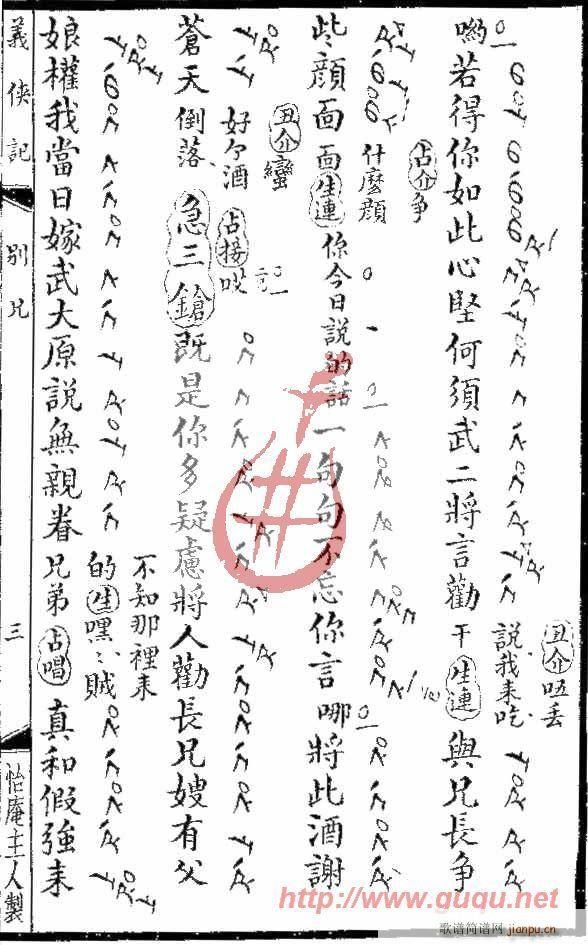 喲若得你如此心堅何須武二將言勸
占介爭
干生連與兄長爭
說我来吃
丑介唔丢
此顏面面生連你今日說的話一句句不忘你言哪將此酒謝
什麽顏
丑介蠻
蒼天倒落急三鎗既是你多疑慮將人勸長兄嫂有父
好个酒
占接哎
娘權我當日嫁武大原說無親眷兄弟占唱真和假強来
不知那裡来
的生嘿、賊
義俠記
別兄
三
怡庵主人製
http://www.guqu.net
歌谱简谱网
jianpu.cn